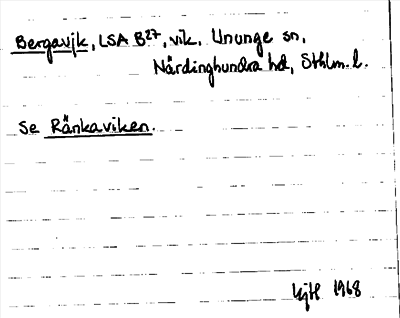 Bergavik, LSA B27, vik, Ununge sn,
Närdinghundra hd, Sthlm. l.
Se Ränkaviken.
1968